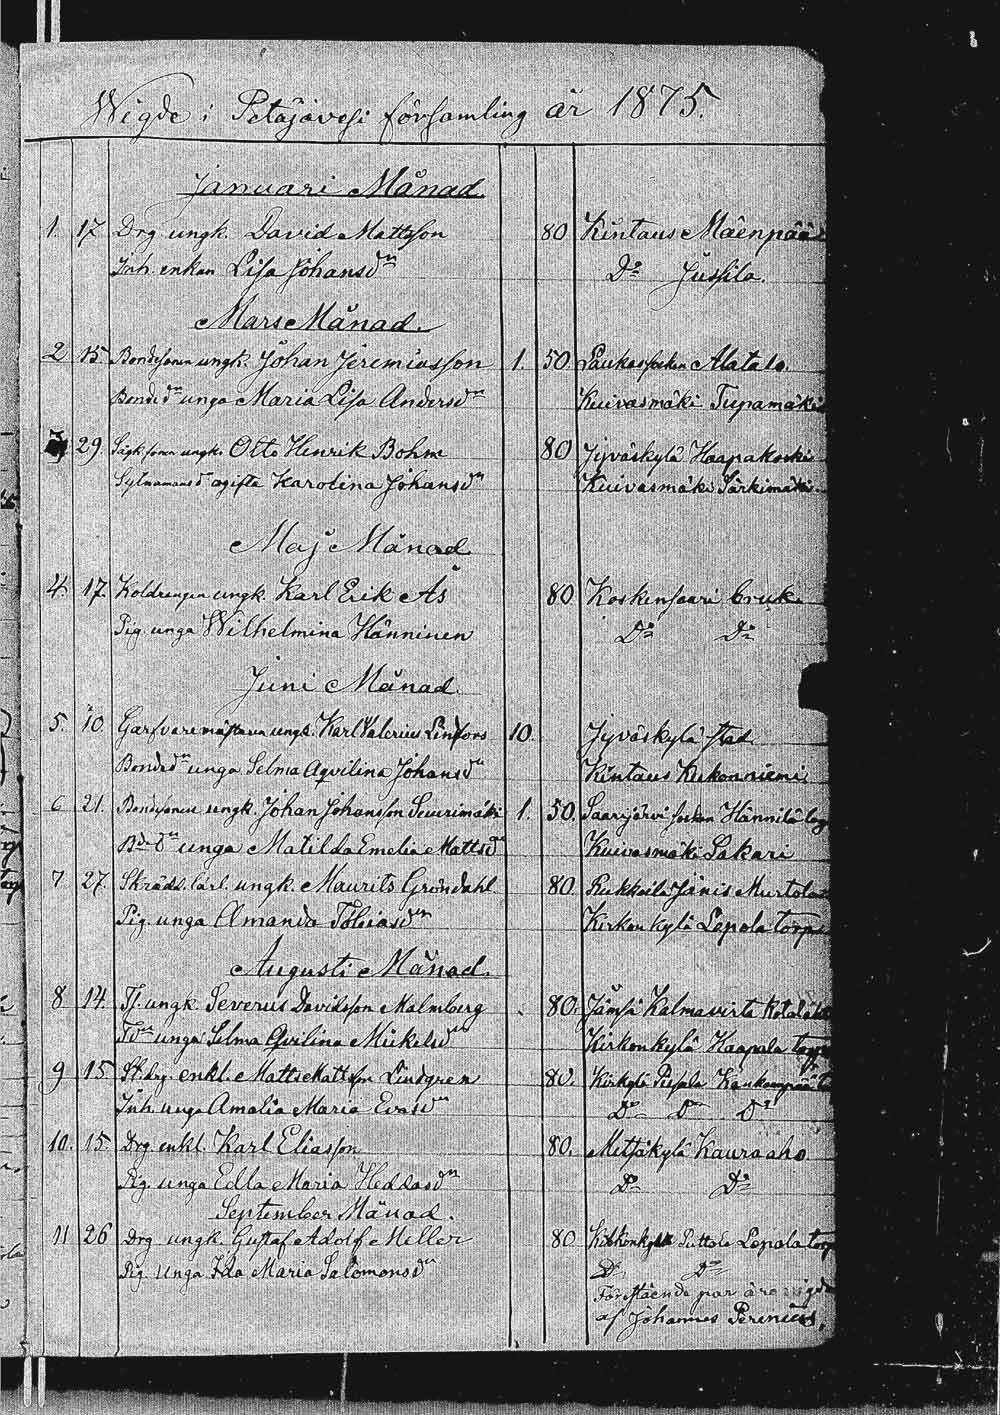 Wigde i Petäjävesi församling år 1875.
Januari Månad
1. 17 Drg ungk. David Mattsson 80 Kintaus Mäenpää
Inh. enkan Lisa Johansdn Do Jussila.
Mars Månad.
2 15. Bondesonen ungk. Johan Jeremiasson 1. 50. Laukas socken Alatalo.
Bonded unga Maria Lisa Andersdn Kuivasmäki Tupamäki
3 29. ungk. Otto Henrik Bohm 80 Jyväskylä Haapakoski
ogifta Karolina Johansdn Kuivasmäki Särkimäki.
Maj Månad
4. 17. Koldrengen ungk. Karl Erik Ås 80 Koskensaari bruk
Pig. unga Wilhelmina Hänninen Do Do
Juni Månad.
5. 10. Garfvaremästaren ungk. Karl Valerius Linfors 10. Jyväskylä stad
Bondedn unga Selma Aqvilina Johansdn Kintaus Kukonniemi
6 21. Bondesonen ungk. Johan Johansson Suurimäki 1. 50. Saarijärvi socken Hännilä
Bdedn unga Matilda Emelia Mattsdn Kuivasmäki Sakari
7 27. Skrädd. lärl. ungk. Maurits Gröndahl 80 Murtola
Pig. unga Amanda Tobiasdn Kirkonkylä Lepola torp
Augusti Månad.
8 14. ungk. Severus Davidsson Malmberg 80. Jämsä Kalmavirta
unga Selma Qvilina Mickelsdn Kirkonkylä Haapala torp
9 15. enkl. Matts Mattsson Lindgren 80. Kirkylä Pupola
Inh. unga Amalia Maria Evasdn Do Do Do
10. 15. Drg. enkl. Karl Eliasson 80. Metsäkylä Kauraaho.
Pig. unga Edla Maria Heddasdn Do Do
September Månad.
11 26 Drg ungk. Gustaf Adolf Meller 80 Kirkonkylä Puttola Lepola torp
Pig. unga Ida Maria Salomonsdn Do Do
Förestående par äro wigde
af Johannes Perenius.